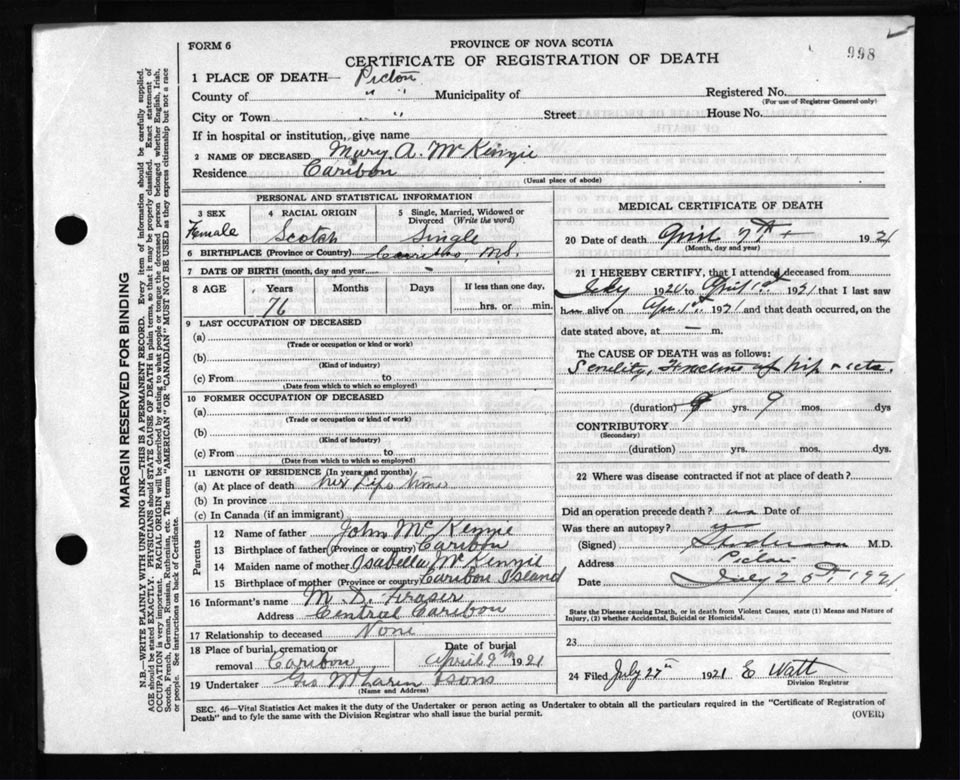 FORM 6
PROVINCE OF NOVA SCOTIA
998
CERTIFICATE OF REGISTRATION OF DEATH
1 PLACE OF DEATH— Pictou
County of " " Municipality of Registered No.
(For use of Registrar General only)
City or Town " " Street House No.
If in hospital or institution, give name
2 NAME OF DECEASED Mary A. McKenzie
Residence Caribou
(Usual place of abode)
PERSONAL AND STATISTICAL INFORMATION
3 SEX 4 RACIAL ORIGIN 5 Single, Married, Widowed or Divorced (Write the word)
Female Scotch Single
6 BIRTHPLACE (Province or Country) N.S.
7 DATE OF BIRTH (month, day and year
8 AGE Years Months Days If less than one day,
76 hrs. or min.
9 LAST OCCUPATION OF DECEASED
(a)
(Trade or occupation or kind or work)
(b)
(Kind of industry)
(c) From to
(Date from which to which so employed)
10 FORMER OCCUPATION OF DECEASED
(a)
(Trade or occupation or kind or work)
(b)
(Kind of industry)
(c) From to
(Date from which to which so employed)
11 LENGTH OF RESIDENCE (In years and months)
(a) At place of death Life time
(b) In province
(c) In Canada (if an immigrant)
Parents
12 Name of father John McKenzie
13 Birthplace of father (Province or country) Caribou
14 Maiden name of mother Isabella McKenzie
15 Birthplace of mother (Province or country) Caribou Island
16 Informant's name M. D. Fraser
Address Central Caribou
17 Relationship to deceased None
18 Place of burial, cremation or Date of burial
removal Caribou April 9th 1921
19 Undertaker Geo McLaren & Sons
(Name and Address)
MEDICAL CERTIFICATE OF DEATH
20 Date of death April 7th 1921
(Month, day and year)
21 I HEREBY CERTIFY, that I attended deceased from
July 1920 to April 1st 1921 that I last saw
alive on Apr. 1st 1921 and that death occurred, on the
date stated above, at — m.
The CAUSE OF DEATH was as follows:
Senility, Fracture of hip
(duration) yrs. 9 mos. dys
CONTRIBUTORY
(Secondary)
(duration) yrs. mos. dys.
22 Where was disease contracted if not at place of death?
Did an operation precede death? no Date of
Was there an autopsy? no
(Signed) M.D.
Address Pictou
Date July 1921
State the Disease causing Death, or in death from Violent Causes, state (1) Means and Nature of
Injury, (2) whether Accidental, Suicidal or Homicidal.
23
24 Filed July 27th 1921 E Watt
Division Registrar
SEC. 46—Vital Statistics Act makes it the duty of the Undertaker or person acting as Undertaker to obtain all the particulars required in the "Certificate of Registration of
Death" and to fyle the same with the Division Registrar who shall issue the burial permit.
(OVER)
MARGIN RESERVED FOR BINDING
N.B.—WRITE PLAINLY WITH UNFADING INK—THIS IS A PERMANENT RECORD. Every item of information should be carefully supplied.
AGE should be stated EXACTLY. PHYSICIANS should STATE CAUSE OF DEATH in plain terms, so that it may be properly classified. Exact statement of
OCCUPATION is very important. RACIAL ORIGIN will be described by stating to what people or tongue the deceased person belonged whether English, Irish,
Scotch, French, German, Russian, Ruthenian, etc. The terms "AMERICAN" OR "CANADIAN" MUST NOT BE USED as they express citizenship but not a race
or people. See instructions on back of Certificate.